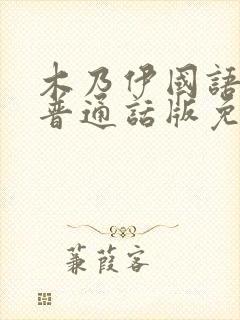 木乃伊國語
普通話版免
蒹葭客